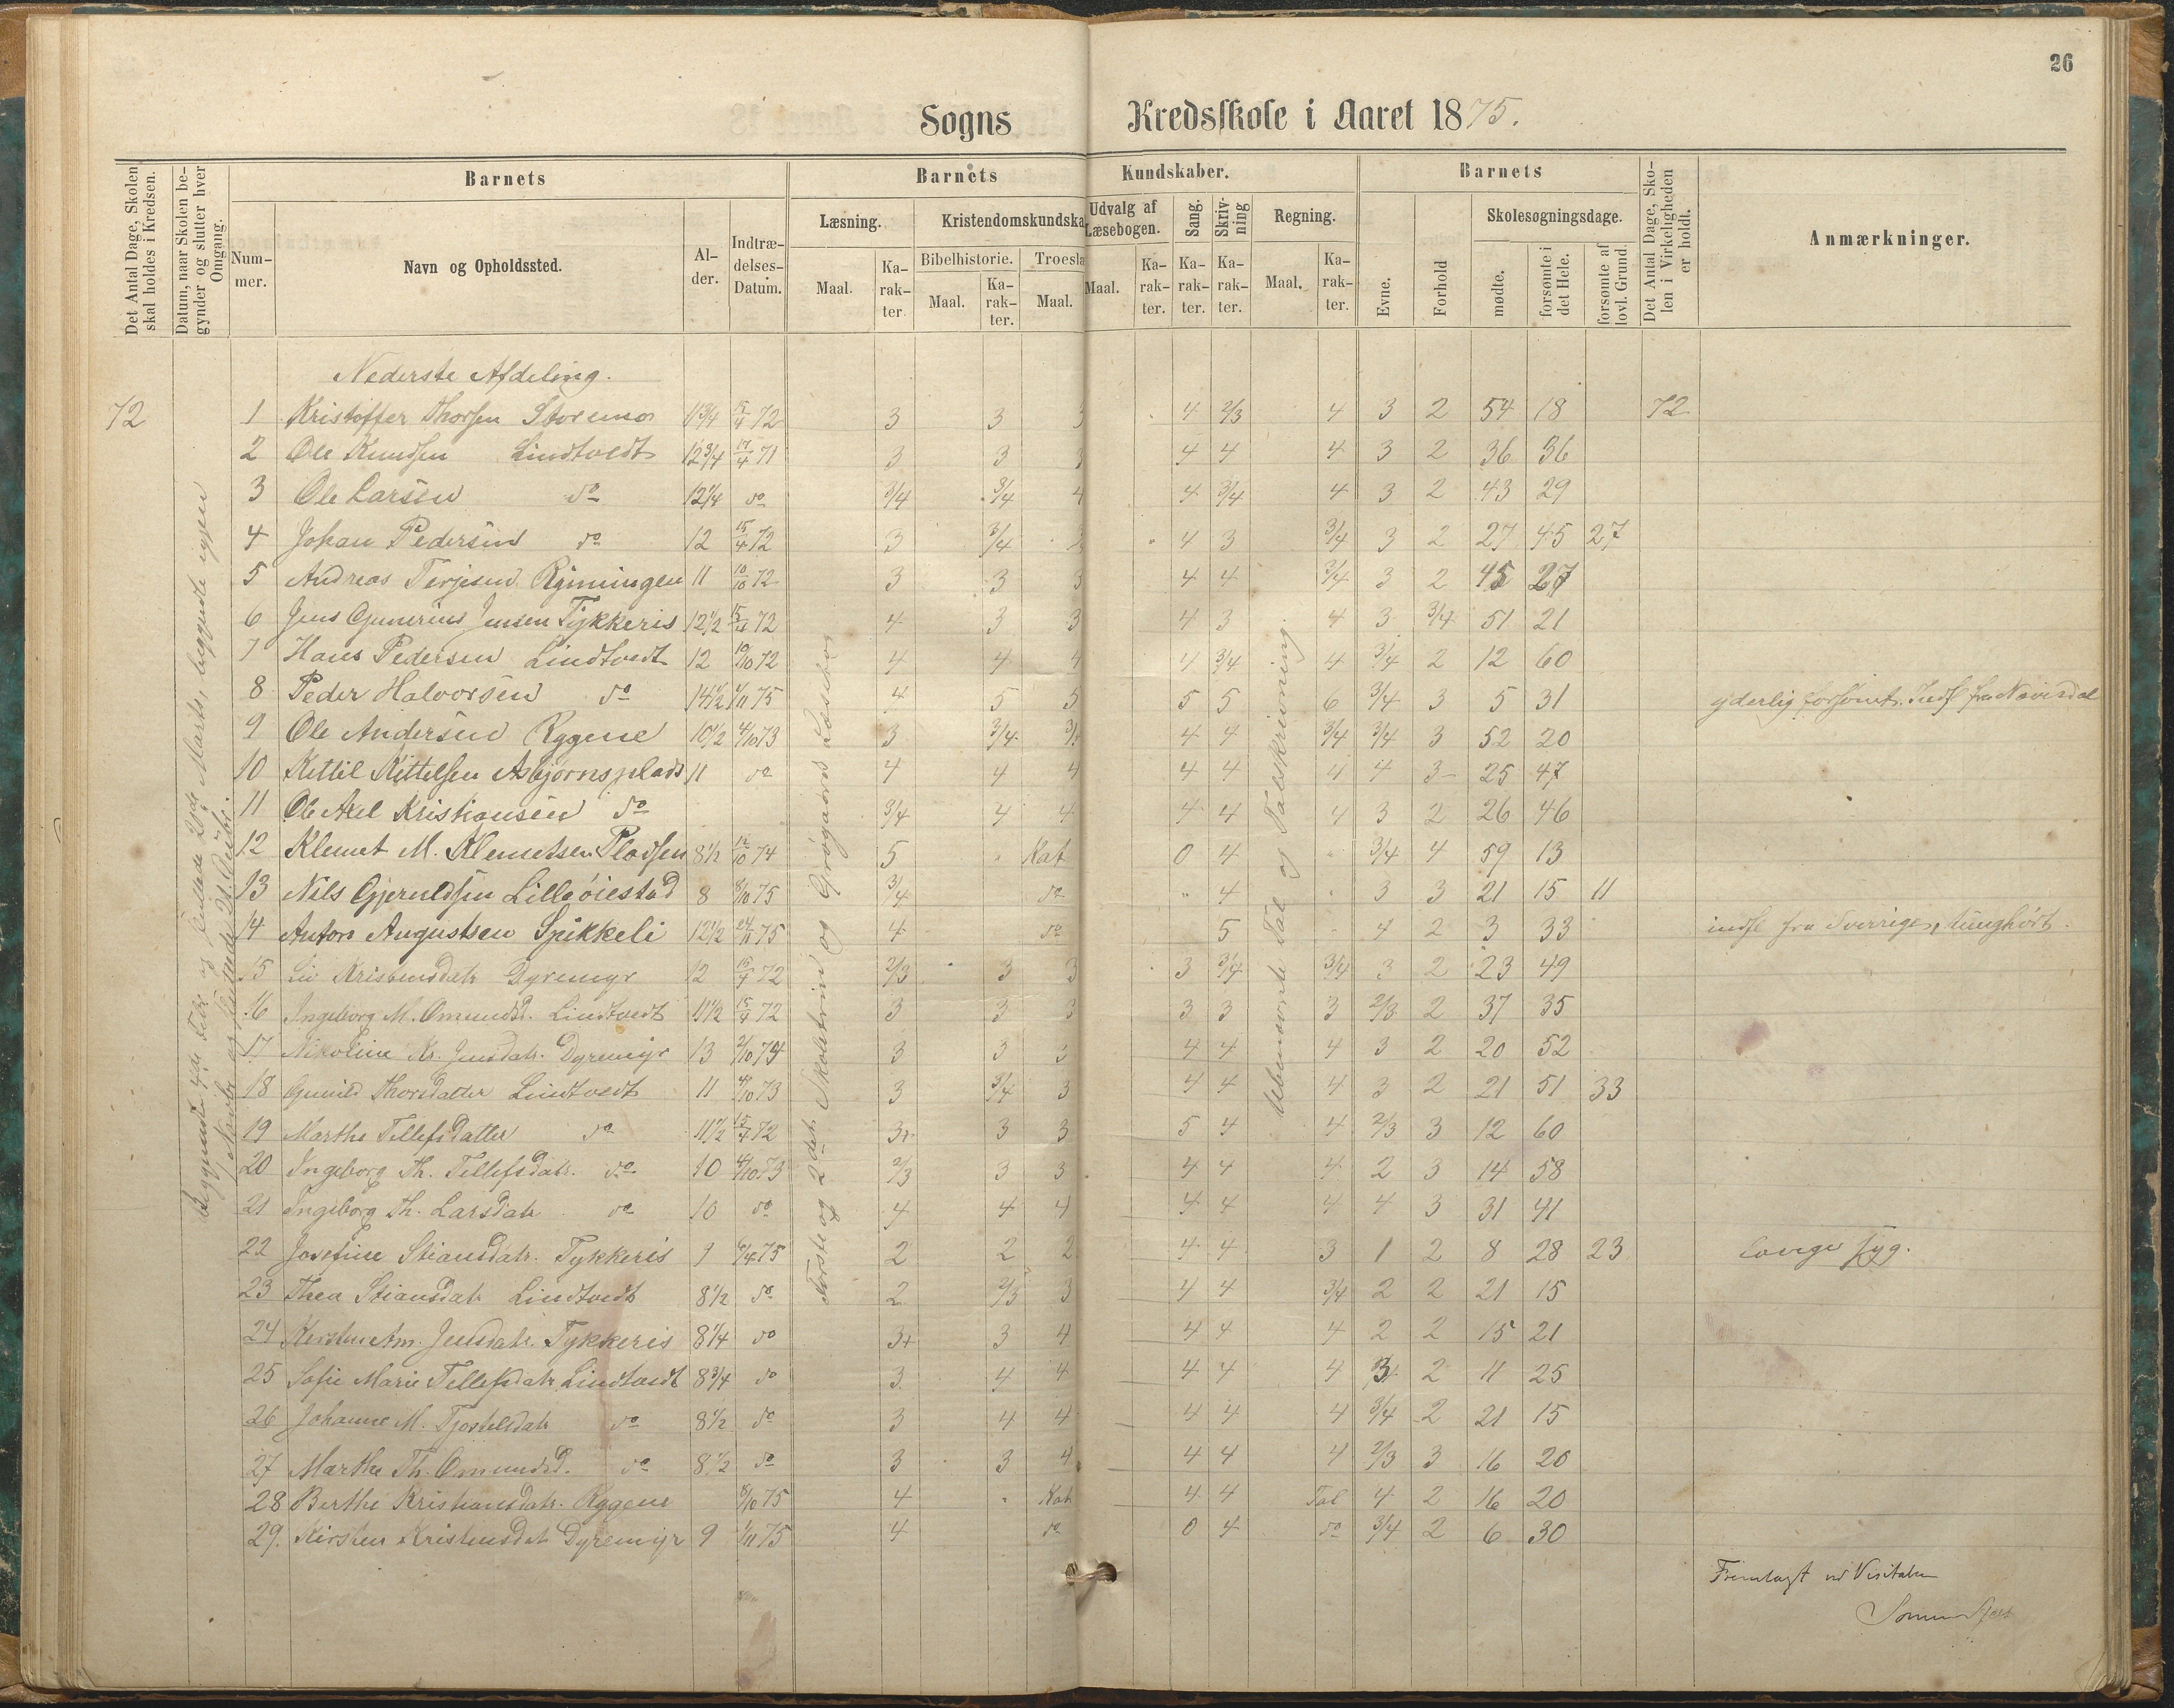 26
Sogns Kredsskole i Aaret 1875.
Det Antal Dage, Skolen skal holdes i Kredsen.
Datum, naar Skolen begynder og slutter hver Omgang.
Barnets
Nummer.
Navn og Opholdssted.
Alder.
Indtrædelses-Datum.
Barnets Kundskaber.
Læsning.
Maal.
Karakter.
Kristendomskundska
Bibelhistorie.
Maal.
Karakter.
Troesla
Maal.
Udvalg af Læsebogen.
Maal.
Karakter.
Sang.
Karakter.
Skrivning
Karakter.
Regning.
Maal.
Karakter.
Barnets
Evne.
Forhold
Skolesøgningsdage.
mødte.
forsømte i det Hele.
forsømte af lovl. Grund.
Det Antal Dage, Skolen i Virkeligheden er holdt.
Anmærkninger.
Nederste Afdeling.
72 1 Kristoffer Thorsen Storemo 11 3/4 15/4 72 3 3 3 4 2/3 4 3 2 54 18 72
2 Ole Knudsen Lindtvedt 12 3/4 17/4 71 3 3 3 4 4 4 3 2 36 36
3 Ole Larsen do 12 1/4 do 3/4 3/4 4 4 3/4 4 3 2 43 29
4 Johan Pedersen do 12 15/4 72 3 3/4 3 4 3 3/4 3 2 27 45 27
5 Andreas Terjesen Rjimingen 11 10/10 72 3 3 3 4 4 3/4 3 2 45 27
6 Jens Gunerius Jensen Tykkeris 12 1/2 15/4 72 4 3 3 4 3 4 3 3/4 51 21
7 Hans Pedersen Lindtvedt 12 10/10 72 4 4 4 4 3/4 4 3/4 2 12 60
8 Peder Halvorsen do 14 1/2 1/11 75 4 5 5 5 5 6 3/4 3 5 31 yderlig forsømt. Indfl fra
9 Ole Andersen Rggene 10 1/2 4/10 73 3 3/4 3/4 4 4 3/4 3/4 3 52 20
10 Kittil Kittelsen Asbjørnsplads 11 do 4 4 4 4 4 4 4 3 25 47
11 Ole Axel Kristiansen do 3/4 4 4 4 4 4 3 2 26 46
12 Klemet M. Klemetsen Pladsen 8 1/2 12/10 74 5 " Kat 0 4 " 3/4 4 59 13
13 Nils Gjeruldsen Lilleøiestad 8 8/10 75 3/4 do " 4 " 3 3 21 15 11
14 Anton Augustsen Spikkeli 12 1/2 24/11 75 4 do 5 4 2 3 33 indfl fra Sverrige, tunghørt.
15 Kristensdatr Dyremyr 12 15/4 72 2/3 3 3 3 3/4 3/4 3 2 23 49
16 Ingeborg M. Omundsd. Lindtvedt 11 1/2 15/4 72 3 3 3 3 3 3 2/3 2 37 35
17 Nikoline Kr. Jensdatr. Dyremyr 13 2/10 74 3 3 3 4 4 4 3 2 20 52
18 Gunild Thorsdatter Lindtvedt 11 4/10 73 3 3/4 3 4 4 4 3 2 21 51 33
19 Marthe Tellefsdatter do 11 1/2 15/4 72 3+ 3 3 5 4 4 2/3 3 12 60
20 Ingeborg Th. Tellefsdatr. do 10 4/10 73 2/3 3 3 4 4 4 2 3 14 58
21 Ingeborg Th. Larsdatr do 10 do 4 4 4 4 4 4 4 3 31 41
22 Josefine Stiansdatr. Tykkeris 9 6/4 75 2 2 2 4 4 3 1 2 8 28 23 længe syg.
23 Thea Stiansdatr Lindtvedt 8 1/2 do 2 2/3 3 4 4 3/4 2 2 21 15
24 Kirstine Am. Jensdatr. Tykkeris 8 1/4 do 3+ 3 4 4 4 4 2 2 15 21
25 Sofie Marie Tellefsdatr Lindtvedt 8 3/4 do 3 4 4 4 4 4 3 2 11 25
26 Johanne M. Tjostelsdatr do 8 1/2 do 3 4 4 4 4 4 3/4 2 21 15
27 Marthe Th. Omundsd. do 8 1/2 do 3 3 4 4 4 4 2/3 3 16 20
28 Berthe Kristiansdatr. Rggene 8/10 75 4 " Kat 4 4 Tal 4 2 16 20
29. Kirsten Kristensdatr Dyremyr 9 1/11 75 4 do 0 4 do 3/4 2 6 30
Begyndte 4de Febr og sluttede 2den Marts, begyndte igjen
Første og 2det Skoletrin og Grøgaards Læsebog
Ubenævnte Tal og Talskrivning
Fremlagt ved Visitatsen